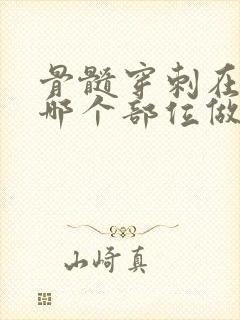 骨髓穿刺在
哪个部位做
山崎真